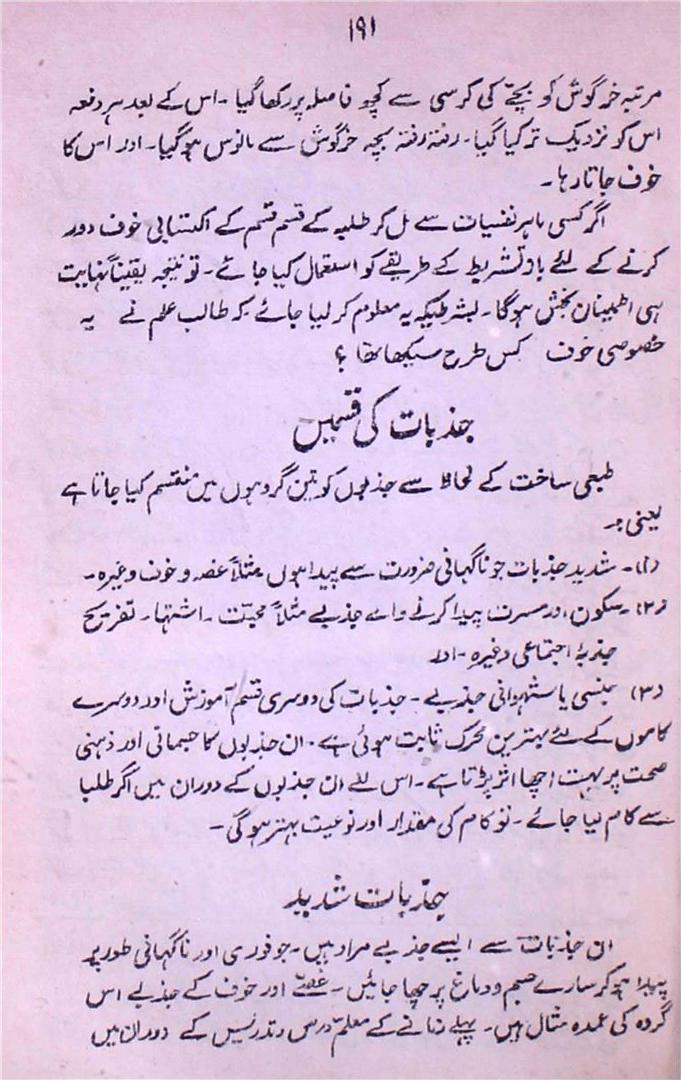 ۱۹۱
مرتبہ خرگوش کو بچے کی کرسی سے کچھ فاصلہ پر رکھا گیا۔ اس کے بعد ہر دفعہ
اس کو نزدیک تر کیا گیا۔ رفتہ رفتہ بچہ خرگوش سے مانوس ہو گیا۔ اور اس کا
خوف جاتا رہا۔
اگر کسی ماہر نفسیات سے مل کر طلبہ کے قسم قسم کے اکتسابی خوف دور
کرنے کے لئے باز تشریط کے طریقے کو استعمال کیا جائے۔ تو نتیجہ یقیناً نہایت
ہی اطمینان بخش ہوگا۔ بشرطیکہ یہ معلوم کر لیا جائے کہ طالب علم نے یہ
خصوصی خوف کس طرح سیکھا تھا ؟
جذبات کی قسمیں
طبعی ساخت کے لحاظ سے جذبوں کو تین گروہوں میں منقسم کیا جاتا ہے
یعنی:۔
(۱)۔ شدید جذبات جو ناگہانی ضرورت سے پیدا ہوں مثلاً غصہ و خوف وغیرہ۔
(۲) سکون اور مسرت پیدا کرنے والے جذبے مثلاً محبت۔ اشتہا۔ تفریح
جذبۂ اجتماعی وغیرہ۔ اور
(۳) جنسی یا شہوانی جذبے۔ جذبات کی دوسری قسم آموزش اور دوسرے
کاموں کے لئے بہترین محرک ثابت ہوئی ہے۔ ان جذبوں کا جسمانی اور ذہنی
صحت پر بہت اچھا اثر پڑتا ہے۔ اس لئے ان جذبوں کے دوران میں اگر طلبا
سے کام لیا جائے۔ تو کام کی مقدار اور نوعیت بہتر ہوگی۔
جذبات شدید
ان جذبات سے ایسے جذبے مراد ہیں۔ جو فوری اور ناگہانی طور پر
پیدا ہو کر سارے جسم و دماغ پر چھا جائیں۔ غصے اور خوف کے جذبے اس
گروہ کی عمدہ مثال ہیں۔ پہلے زمانے کے معلم درس و تدریس کے دوران میں